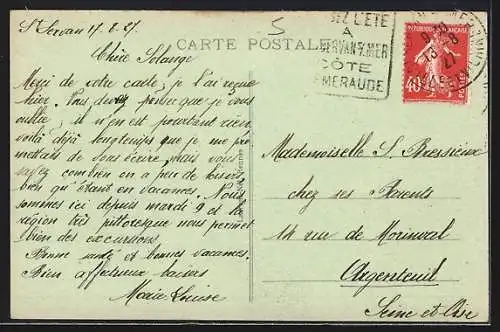 St Servan 17.8.27.
Chère Solange
Merci de votre carte, je l'ai reçue
hier. Vous devez penser que je vous
oublie, il n'en est pourtant rien,
voilà déjà longtemps que je me pro
mettais de vous écrire, mais vous
savez combien on a peu de
bien qu'étant en vacances. Nous
sommes ici depuis mardi 9 et la
région très pittoresque nous permet
bien des excursions.
Bonne santé et bonnes vacances.
Bien affectueux baisers
Marie Louise
5
CARTE POSTALE
L'ÉTÉ
A
SERVAN S/MER
CÔTE
EMERAUDE
RÉPUBLIQUE FRANÇAISE
40
Mademoiselle S. Bressieux
chez ses Parents
14 rue de
Argenteuil
Seine et Oise